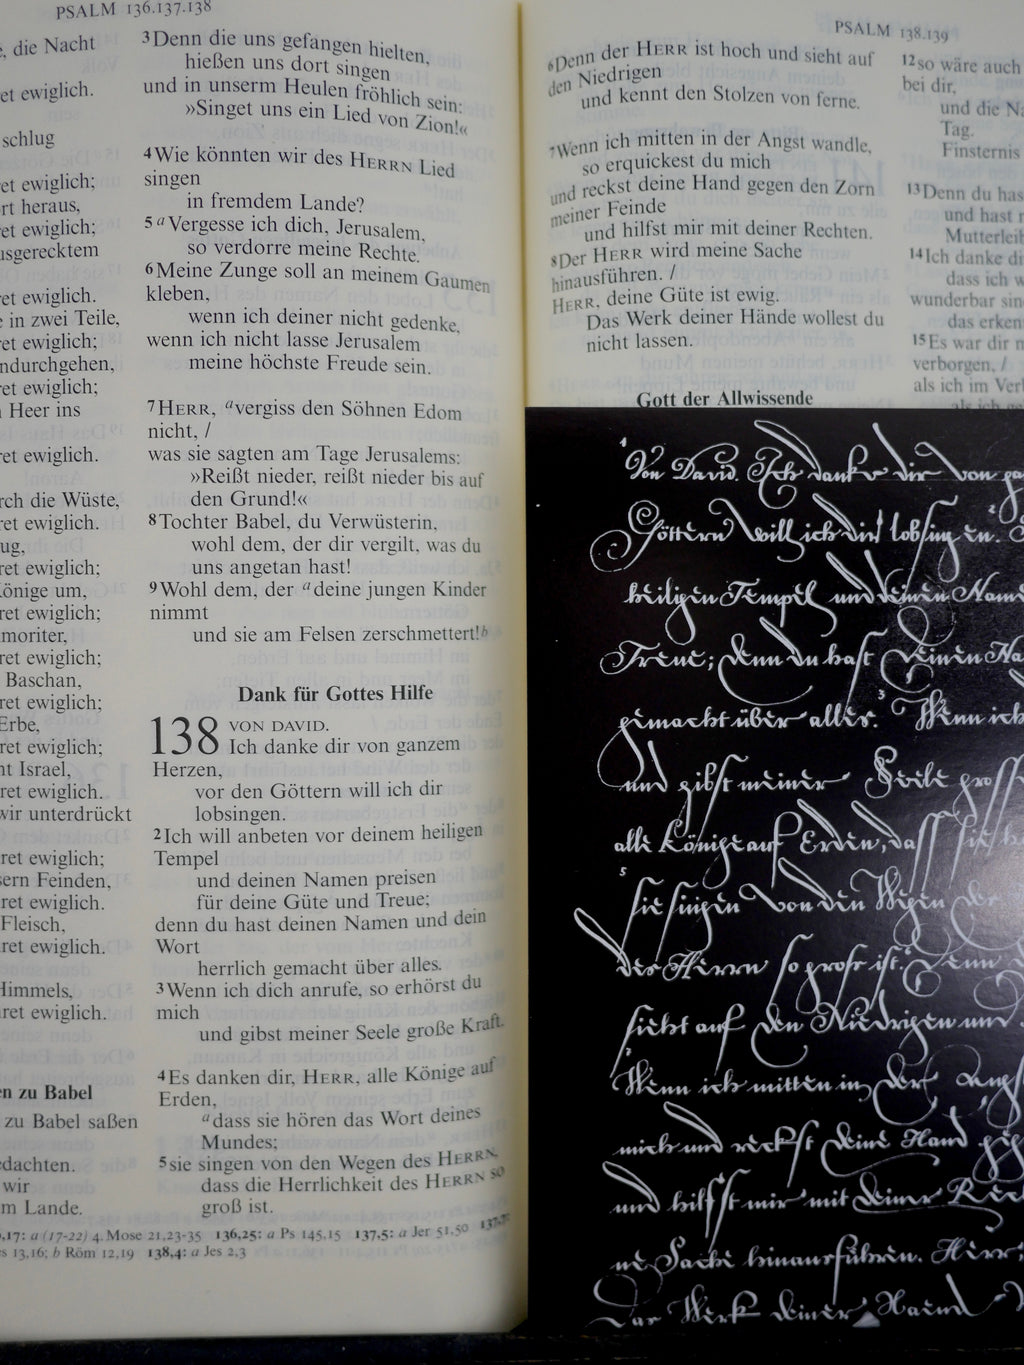 PSALM 136.137.138
, die Nacht
et ewiglich.
schlug
ret ewiglich;
rt heraus,
ret ewiglich;
usgerecktem
ret ewiglich.
e in zwei Teile,
ret ewiglich;
ndurchgehen,
ret ewiglich;
Heer ins
ret ewiglich.
rch die Wüste,
ret ewiglich.
ug,
ret ewiglich;
Könige um,
ret ewiglich;
moriter,
ret ewiglich;
Baschan,
ret ewiglich;
Erbe,
ret ewiglich;
nt Israel,
ret ewiglich.
wir unterdrückt
ret ewiglich;
sern Feinden,
ret ewiglich.
Fleisch,
ret ewiglich.
Himmels,
ret ewiglich.
n zu Babel
zu Babel saßen
dachten.
wir
m Lande.
3 Denn die uns gefangen hielten,
hießen uns dort singen
und in unserm Heulen fröhlich sein:
»Singet uns ein Lied von Zion!«
4 Wie könnten wir des HERRN Lied
singen
in fremdem Lande?
5 a Vergesse ich dich, Jerusalem,
so verdorre meine Rechte.
6 Meine Zunge soll an meinem Gaumen
kleben,
wenn ich deiner nicht gedenke,
wenn ich nicht lasse Jerusalem
meine höchste Freude sein.
7 HERR, a vergiss den Söhnen Edom
nicht, /
was sie sagten am Tage Jerusalems:
»Reißt nieder, reißt nieder bis auf
den Grund!«
8 Tochter Babel, du Verwüsterin,
wohl dem, der dir vergilt, was du
uns angetan hast!
9 Wohl dem, der a deine jungen Kinder
nimmt
und sie am Felsen zerschmettert! b
Dank für Gottes Hilfe
138 VON DAVID.
Ich danke dir von ganzem
Herzen,
vor den Göttern will ich dir
lobsingen.
2 Ich will anbeten vor deinem heiligen
Tempel
und deinen Namen preisen
für deine Güte und Treue;
denn du hast deinen Namen und dein
Wort
herrlich gemacht über alles.
3 Wenn ich dich anrufe, so erhörst du
mich
und gibst meiner Seele große Kraft.
4 Es danken dir, HERR, alle Könige auf
Erden,
a dass sie hören das Wort deines
Mundes;
5 sie singen von den Wegen des HERRN,
dass die Herrlichkeit des HERRN so
groß ist.
,17: a (17-22) 4. Mose 21,23-35 136,25: a Ps 145,15 137,5: a Jer 51,50
s 13,16; b Röm 12,19 138,4: a Jes 2,3
PSALM 138.139
6 Denn der HERR ist hoch und sieht auf
den Niedrigen
und kennt den Stolzen von ferne.
7 Wenn ich mitten in der Angst wandle,
so erquickest du mich
und reckst deine Hand gegen den Zorn
meiner Feinde
und hilfst mir mit deiner Rechten.
8 Der HERR wird meine Sache
hinausführen. /
HERR, deine Güte ist ewig.
Das Werk deiner Hände wollest du
nicht lassen.
Gott der Allwissende
12 so wäre auch
bei dir,
und die Na
Tag.
Finsternis
13 Denn du has
und hast m
Mutterleib
14 Ich danke dir
dass ich w
wunderbar sin
das erken
15 Es war dir n
verborgen, /
als ich im Verb
1 Von David. Ich danke dir von ga
Göttern will ich dir lobsingen.
heiligen Tempel und deinen Name
Treue; denn du hast deinen Na
gemacht über alles. 3 Wenn ich
und gibst meiner Seele gross
alle Könige auf Erden, dass sie h
5 sie singen von den Wegen der
des Herrn so gross ist. Denn
sieht auf den Niedrigen und
7 Wenn ich mitten in der Angs
mich und reckst deine Hand geg
und hilfst mir mit deiner Rec
ne Sache hinausführen. Herr,
Das Werk deiner Haend